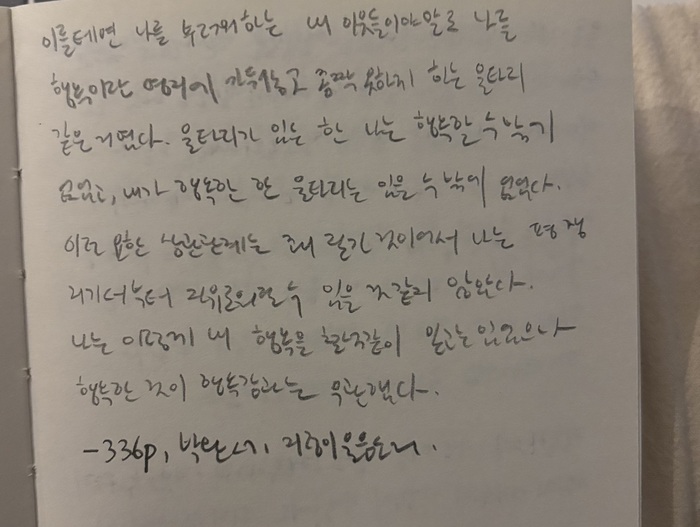 이를테면 나를 부러워하는 내 이웃들이야말로 나를
행복이란 영리에 가둬놓고 꼼짝 못하게 하는 울타리
같은 거였다. 울타리가 있는 한 나는 행복할 수밖에
없었고, 내가 행복한 한 울타리는 있을 수밖에 없었다.
이런 묘한 상관관계는 꽤 질긴 것이어서 나는 평생
거기서부터 자유로워질 수 없을 것 같지 않았다.
나는 이렇게 내 행복을 철석같이 믿고는 있었으나
행복한 것이 행복감과는 무관했다.
-336p, 박완서,